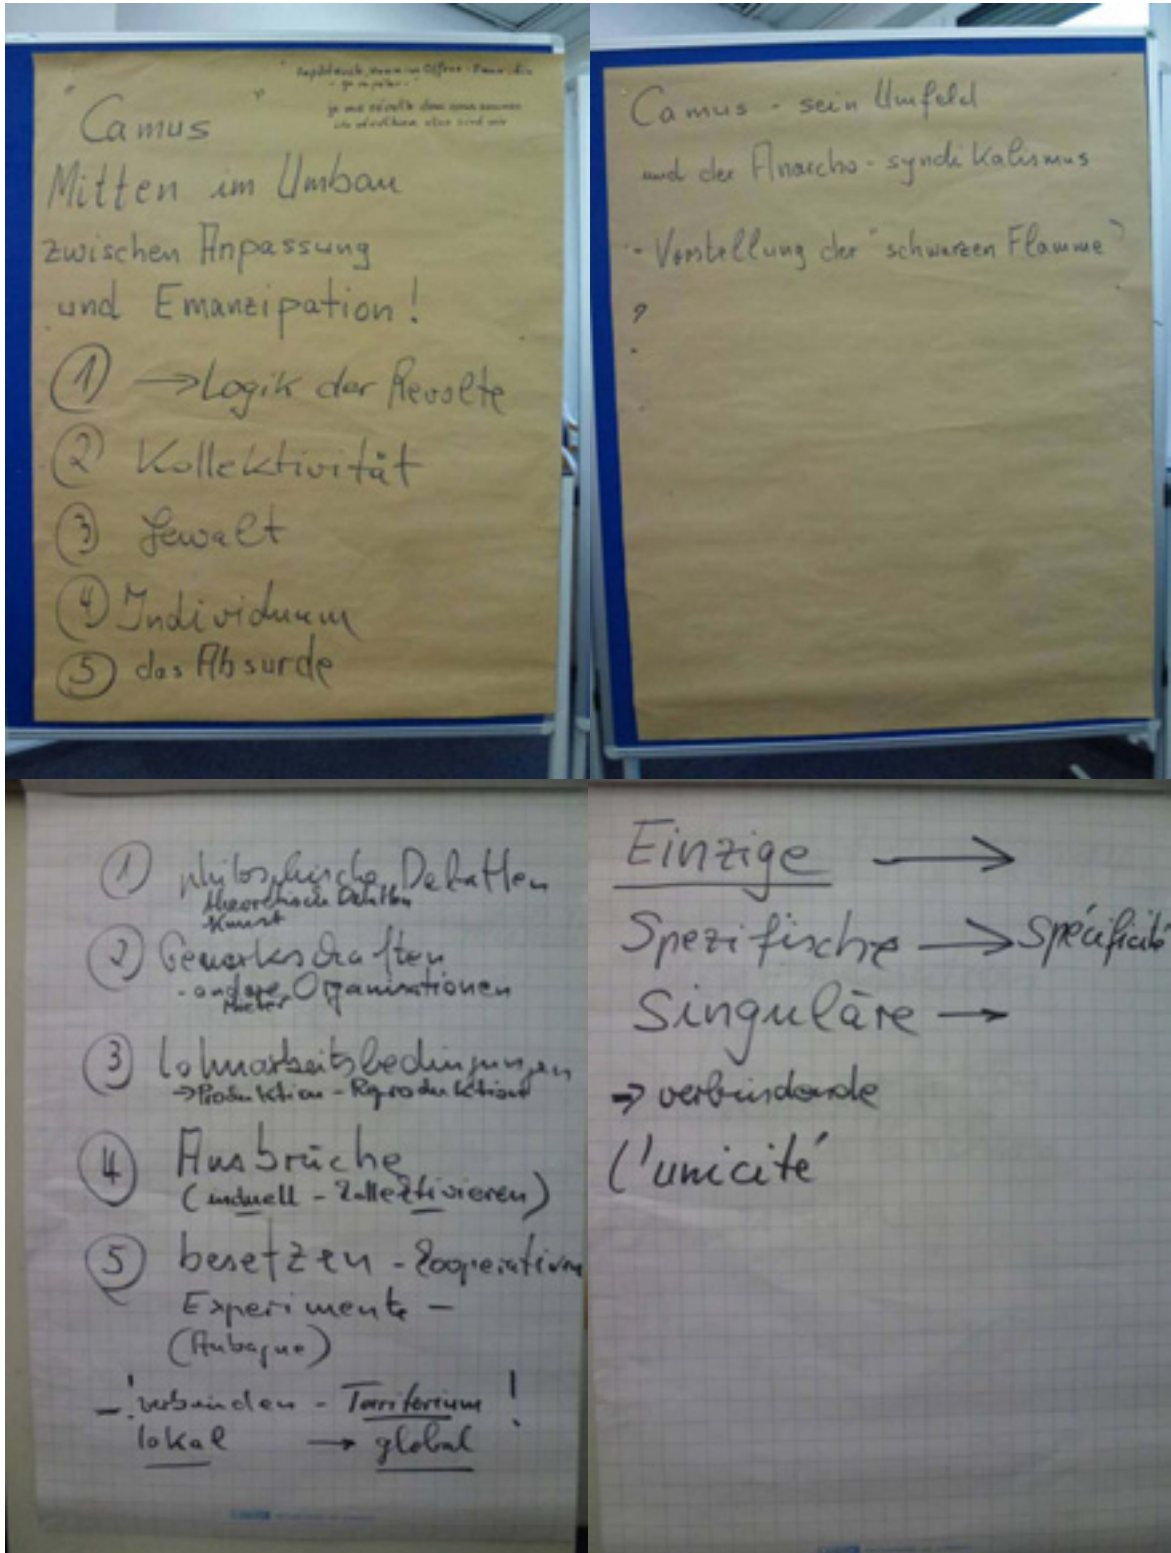 "Camus"
je me révolte donc nous sommes
Mitten im Umbau
zwischen Anpassung
und Emanzipation!
1 → Logik der Revolte
2 Kollektivität
3 Gewalt
4 Individuum
5 das Absurde
Camus - sein Umfeld
und der Anarcho-syndikalismus
- Vorstellung der "schwarzen Flamme"
?
1 philosophische Debatten
theoretische Debatten
Kunst
2 Gewerkschaften
- andere Organisationen
Mieter
3 Lohnarbeitsbedingungen
→ Produktion - Reproduktion
4 Ausbrüche
5 besetzen -
Experimente -
(Aubagne)
-! verbinden - Territorium !
lokal → global
Einzige →
Spezifische → Spécificité
Singuläre →
→ verbindende
l'unicité